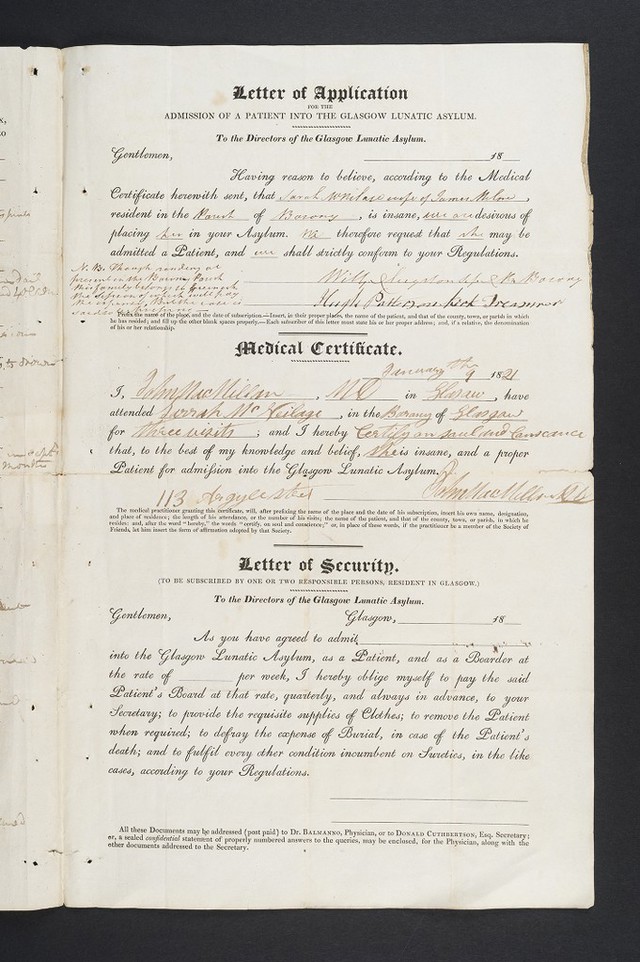 Letter of Application
FOR THE
ADMISSION OF A PATIENT INTO THE GLASGOW LUNATIC ASYLUM.
To the Directors of the Glasgow Lunatic Asylum.
Gentlemen, 18
Having reason to believe, according to the Medical
Certificate herewith sent, that Sarah wife of James Milne,
resident in the Parish of Barony, is insane, we are desirous of
placing her in your Asylum. We therefore request that she may be
admitted a Patient, and we shall strictly conform to your Regulations.
N.B. Though residing at
present in the Barony Parish
this family belongs to Greenock
the Session of which will pay
Barony
Hugh Treasurer
Under the name of the place, and the date of subscription.—Insert, in their proper places, the name of the patient, and that of the county, town, or parish in which
he has resided; and fill up the other blank spaces properly.—Each subscriber of this letter must state his or her proper address; and, if a relative, the denomination
of his or her relationship.
Medical Certificate.
January 9th 1821
I, John MacMillan, MD in Glasgow, have
attended Sarah, in the Barony of Glasgow
for three visits; and I hereby Certify on soul and Conscience
that, to the best of my knowledge and belief, she is insane, and a proper
Patient for admission into the Glasgow Lunatic Asylum.
113 Argyle Street John MacMillan MD
The medical practitioner granting this certificate, will, after prefixing the name of the place and the date of his subscription, insert his own name, designation,
and place of residence; the length of his attendance, or the number of his visits; the name of the patient, and that of the county, town, or parish, in which he
resides: and, after the word "hereby," the words "certify, on soul and conscience;" or, in place of these words, if the practitioner be a member of the Society of
Friends, let him insert the form of affirmation adopted by that Society.
Letter of Security.
(TO BE SUBSCRIBED BY ONE OR TWO RESPONSIBLE PERSONS, RESIDENT IN GLASGOW.)
To the Directors of the Glasgow Lunatic Asylum.
Gentlemen, Glasgow, 18
As you have agreed to admit
into the Glasgow Lunatic Asylum, as a Patient, and as a Boarder at
the rate of per week, I hereby oblige myself to pay the said
Patient's Board at that rate, quarterly, and always in advance, to your
Secretary; to provide the requisite supplies of Clothes; to remove the Patient
when required; to defray the expense of Burial, in case of the Patient's
death; and to fulfil every other condition incumbent on Sureties, in the like
cases, according to your Regulations.
All these Documents may be addressed (post paid) to Dr. BALMANNO, Physician, or to DONALD CUTHBERTSON, Esq. Secretary;
or, a sealed confidential statement of properly numbered answers to the queries, may be enclosed, for the Physician, along with the
other documents addressed to the Secretary.